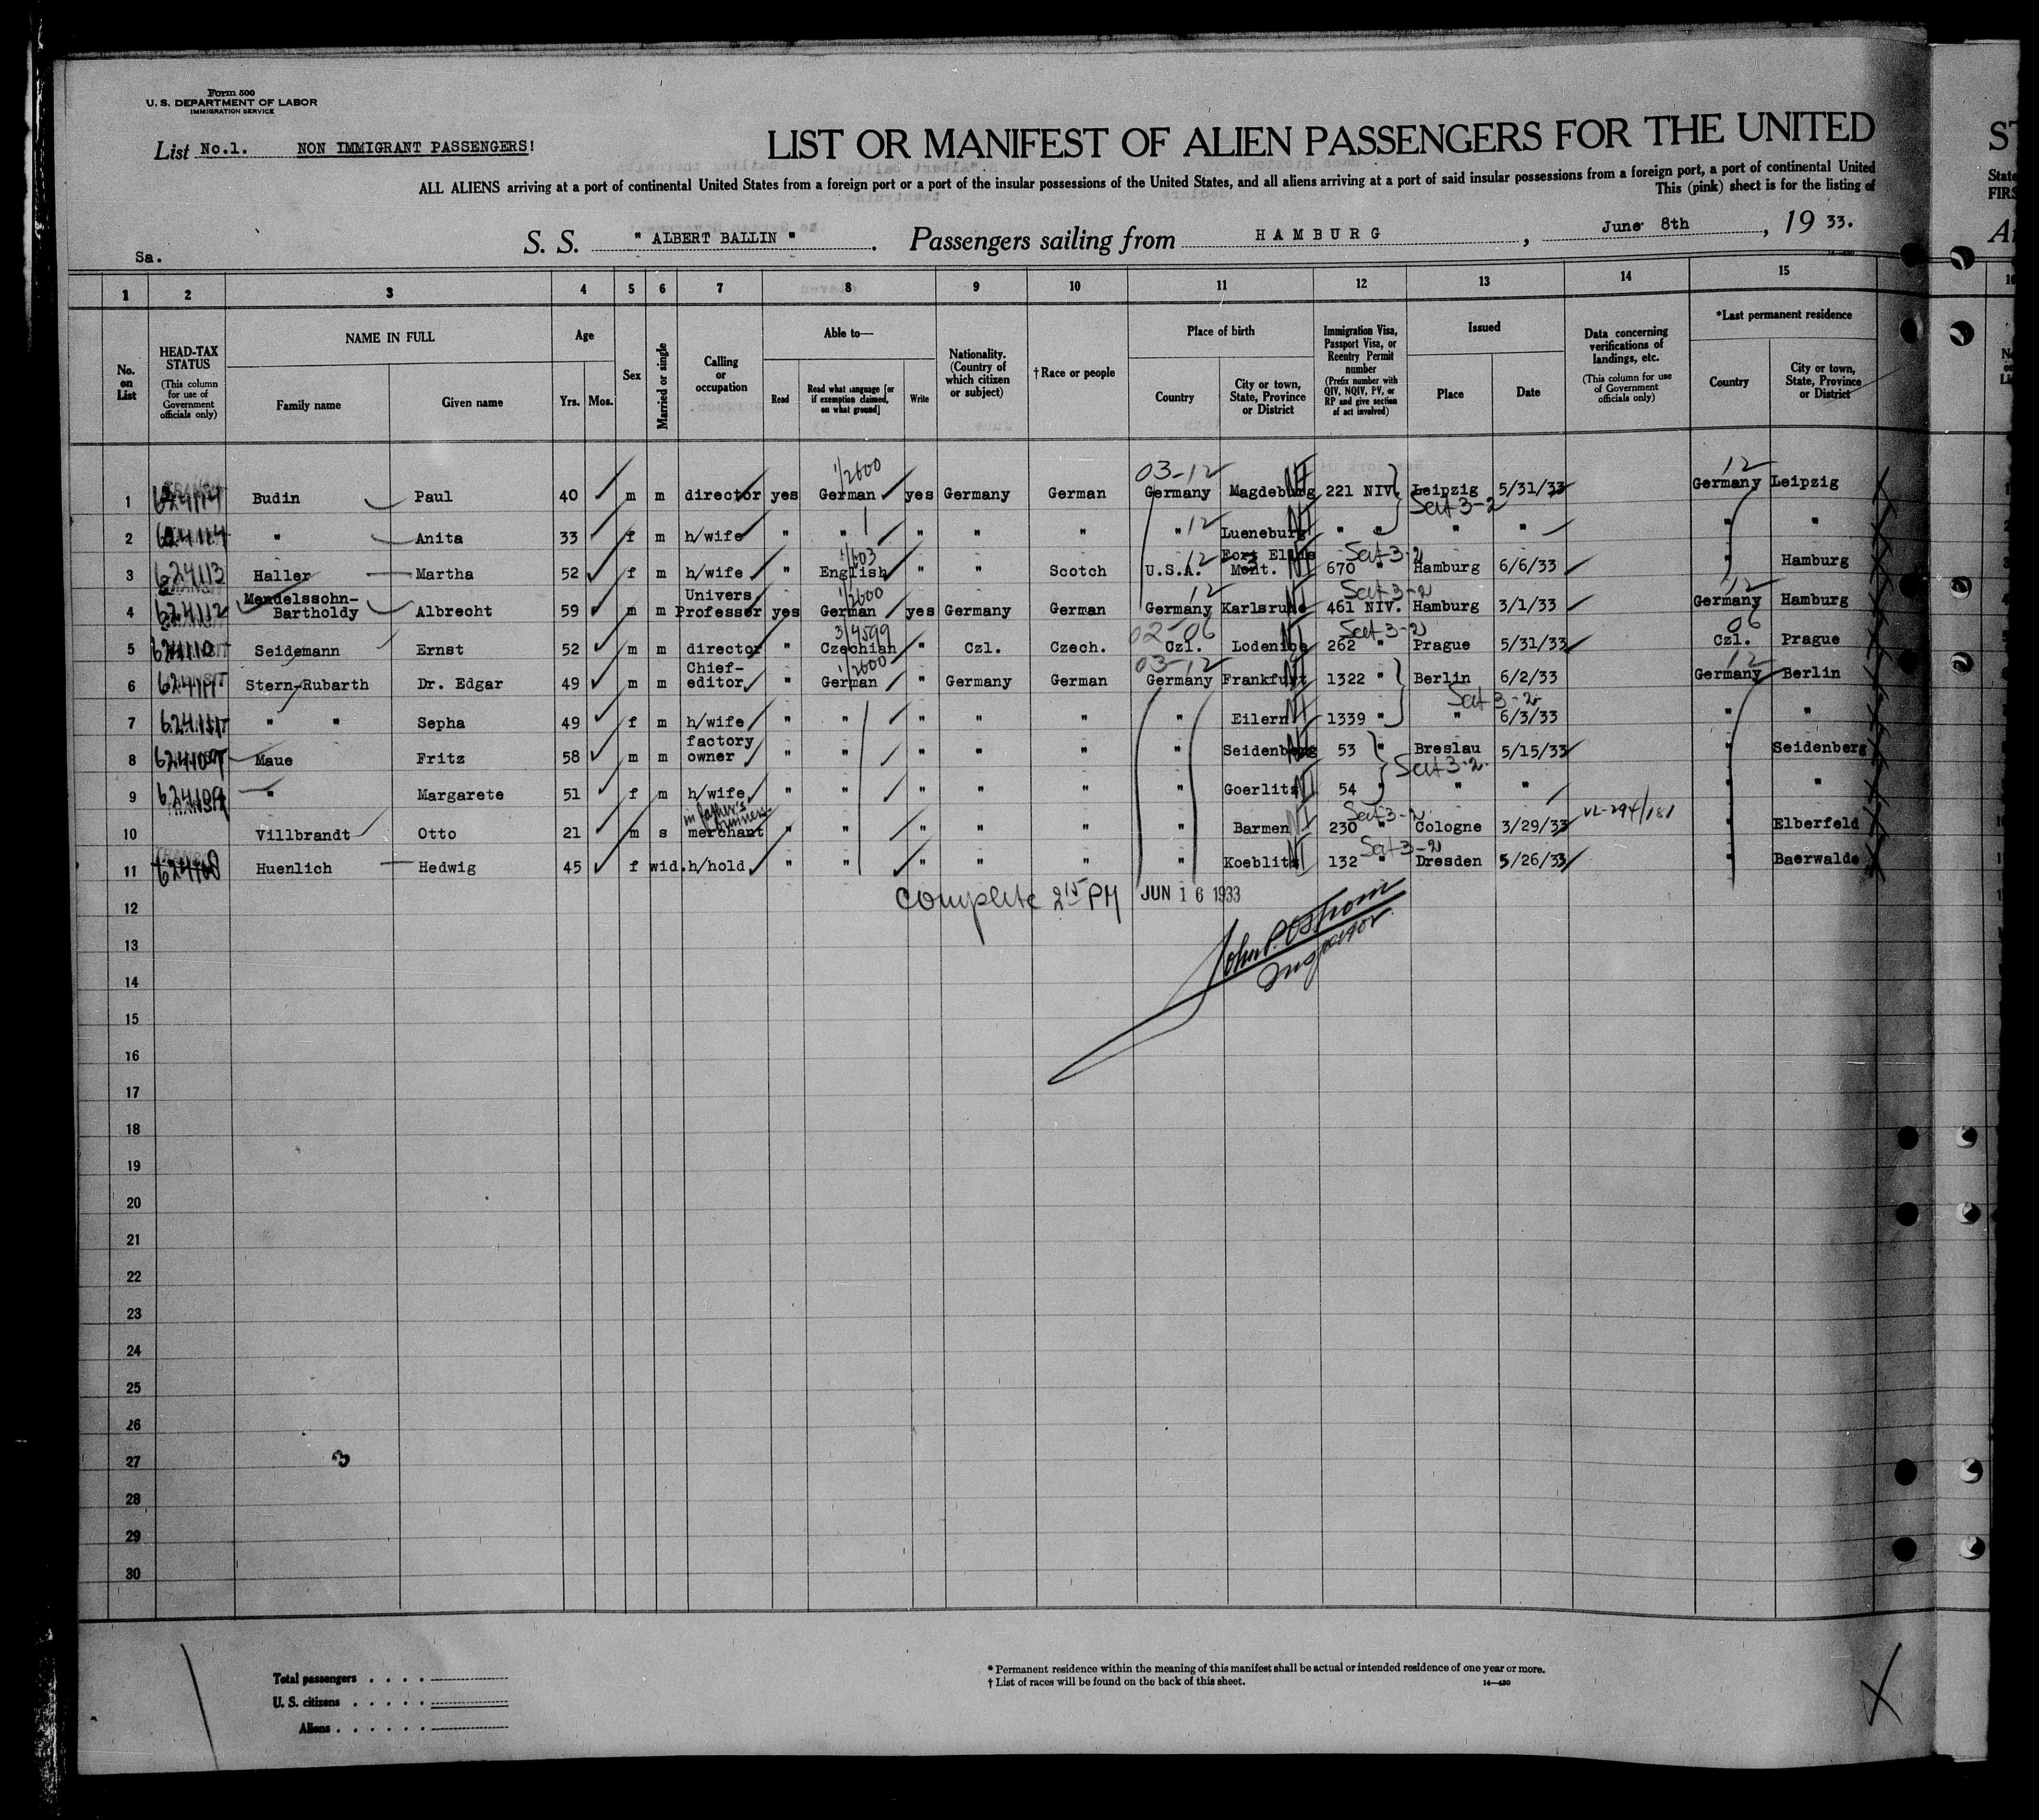 Form 500
U. S. DEPARTMENT OF LABOR
IMMIGRATION SERVICE
List No.1. NON IMMIGRANT PASSENGERS!
LIST OR MANIFEST OF ALIEN PASSENGERS FOR THE UNITED
ST
ALL ALIENS arriving at a port of continental United States from a foreign port or a port of the insular possessions of the United States, and all aliens arriving at a port of said insular possessions from a foreign port, a port of continental United
This (pink) sheet is for the listing of
State
FIRS
S. S. " ALBERT BALLIN " . Passengers sailing from HAMBURG , June 8th , 19 33.
Sa.
1 2 3 4 5 6 7 8 9 10 11 12 13 14 15
No. on List
HEAD-TAX STATUS (This column for use of Government officials only)
NAME IN FULL Family name Given name
Age Yrs. Mos.
Sex
Married or single
Calling or occupation
Able to— Read Read what language [or if exemption claimed, on what ground] Write
Nationality. (Country of which citizen or subject)
† Race or people
Place of birth Country City or town, State, Province or District
Immigration Visa, Passport Visa, or Reentry Permit number (Prefix number with QIV, NQIV, PV, or RP and give section of act involved)
Issued Place Date
Data concerning verifications of landings, etc. (This column for use of Government officials only)
*Last permanent residence Country City or town, State, Province or District
1/2600 03-12 12
1 624114 Budin Paul 40 m m director yes German yes Germany German Germany Magdeburg NI 221 NIV. Leipzig 5/31/33 Germany Leipzig
Sect 3-2
2 624114 " Anita 33 f m h/wife " " " " " " 12 Lueneburg NI " " " " " "
1/603 Fort Ellis Sect 3-2
3 624113 Haller Martha 52 f m h/wife " English " " Scotch U.S.A. 12 Mont. NI 670 " Hamburg 6/6/33 " Hamburg
Mendelssohn- Univers. 1/2600 12 Sect 3-2 12
4 624112 Bartholdy Albrecht 59 m m Professor yes German yes Germany German Germany Karlsruhe 461 NIV. Hamburg 3/1/33 Germany Hamburg
3/4599 02-06 Sect 3-2 06
5 624110 Seidemann Ernst 52 m m director " Czechian " Czl. Czech. Czl. Lodenice 262 " Prague 5/31/33 Czl. Prague
Chief- 1/2600 03-12 12
6 624111 Stern-Rubarth Dr. Edgar 49 m m editor " German " Germany German Germany Frankfurt 1322 " Berlin 6/2/33 Germany Berlin
Sect 3-2
7 624111 " " Sepha 49 f m h/wife " " " " " " Eilern NI 1339 " " 6/3/33 " "
factory
8 624109 Maue Fritz 58 m m owner " " " " " " Seidenberg 53 " Breslau 5/15/33 " Seidenberg
Sect 3-2
9 624109 " Margarete 51 f m h/wife " " " " " " Goerlitz NI 54 " " " " "
in father's business Sect 3-2 VL-294/181
10 Villbrandt Otto 21 m s merchant " " " " " " Barmen NI 230 " Cologne 3/29/33 " Elberfeld
TRANSIT Sect 3-2
11 624108 Huenlich Hedwig 45 f wid. h/hold " " " " " " Koeblitz NI 132 " Dresden 5/26/33 " Baerwalde
12 Complete 2 15 PM JUN 16 1933
13 John P. Ostrom
Inspector
14
15
16
17
18
19
20
21
22
23
24
25
26
27 3
28
29
30
Total passengers . . . .
U. S. citizens . . . . .
Aliens . . . . . .
* Permanent residence within the meaning of this manifest shall be actual or intended residence of one year or more.
† List of races will be found on the back of this sheet. 14—480